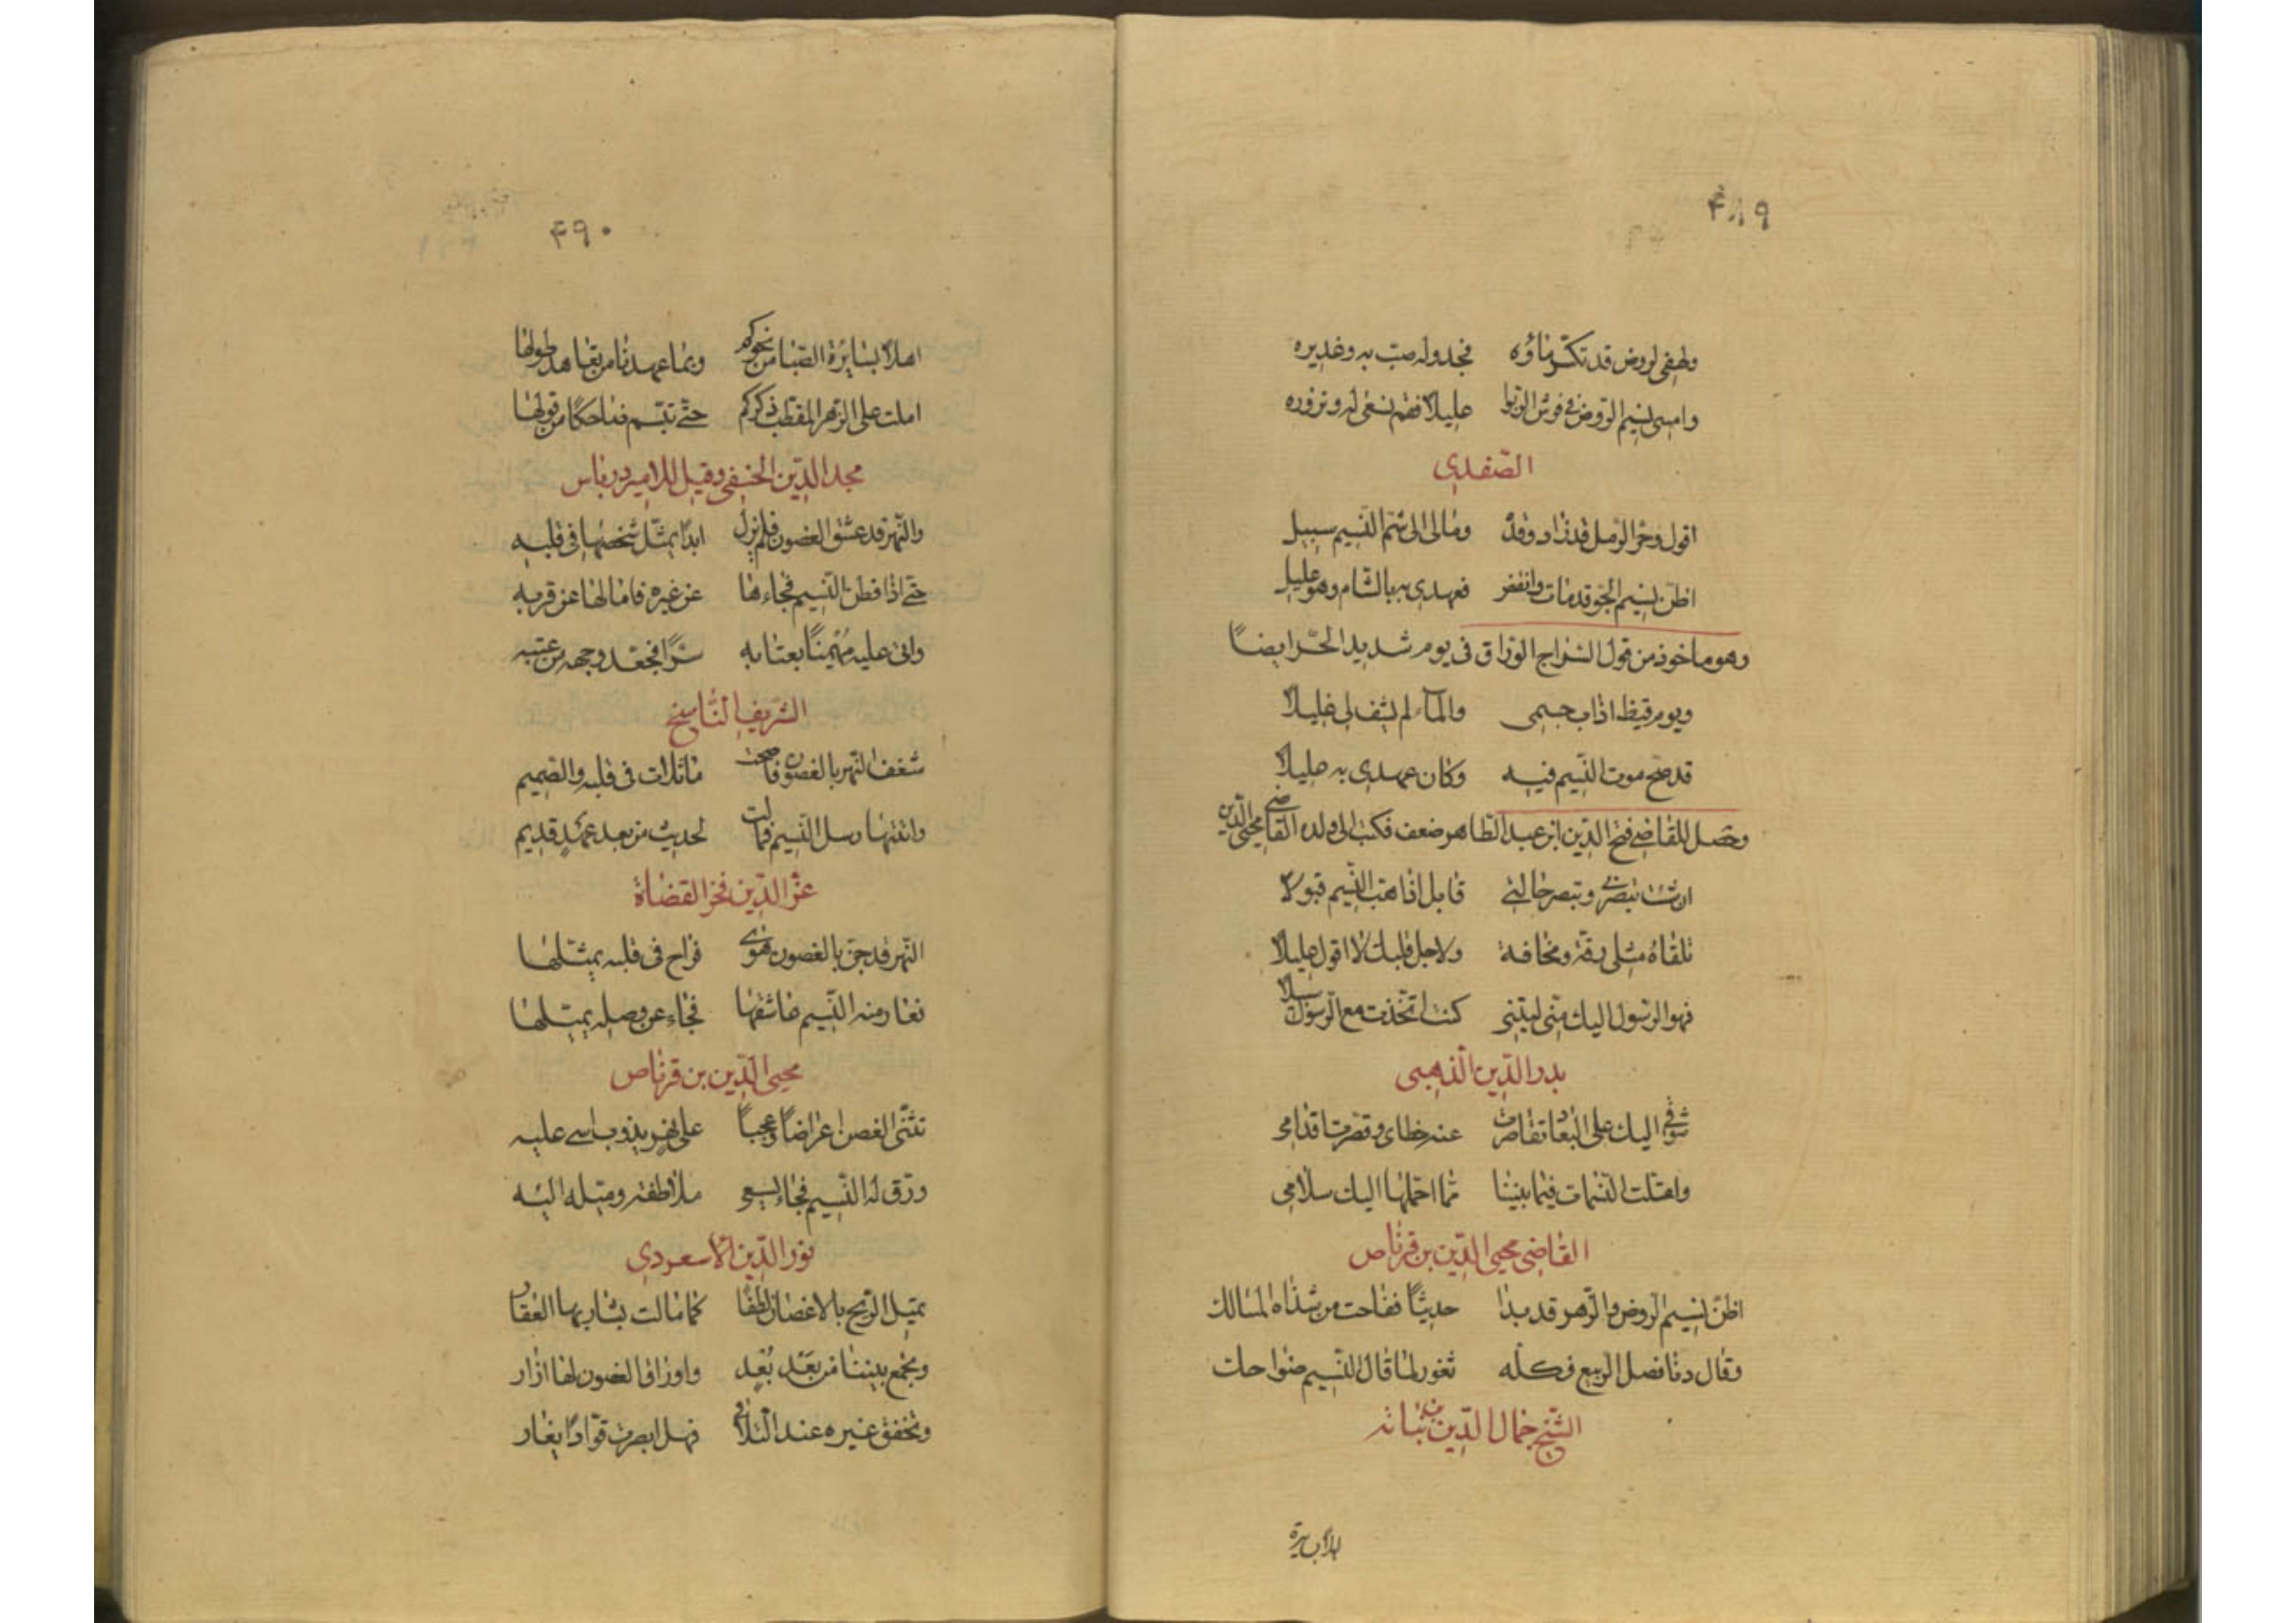 ۴۸۹
ولهفى لروض قد تكدّر ماؤه فجدوله صبّ به وغديره
وامسى نسيم الروض فى فرش الربوا عليلا فقم نسعى له ونزوره
الصّفدى
اقول وحرّ الرمل قد زاد وقده ومالى الى شمّ النسيم سبيل
اظنّ نسيم الجوّ قد مات وانقضر فعهدى به بالشام وهو عليل
وهو ماخوذ من قول السراج الورّاق فى يوم شديد الحرّ ايضاً
ويوم قيظ اذاب جسمى والماء لم يشف لى غليلا
قد صحّ موت النسيم فيه وكان عهدى به عليلا
وحصل للقاضى فتح الدين ابن عبد الظاهر ضعف فكتب الى ولده القاضى محيى الدين
ان شئت تبصرنى وتبصر حالتى قابل اذا هبّ النسيم قبولا
تلقاه مثلى رقة ونحافة ولاجل قلبك لا اقول عليلا
فهو الرسول اليك منّى ليتنى كنت اتّخذت مع الرسول سبيلا
بدر الدّين الذهبى
شوقى اليك على البعاد تقاصرت عنه خطاى وقصّرت اقدامى
واعتلت النسمات فيما بيننا ممّا احمّلها اليك سلامى
القاضى محيى الدّين بن قرناص
اظنّ نسيم الروض والزهر قد بدا حديثاً ففاحت من شذاه المسالك
وقال دنا فصل الربيع فكلّه ثغور لما قال النسيم ضواحك
الشيخ جمال الدّين بن نباته
اهلا بسايرة
۴۹۰
اهلا بسايرة الصّبا من نحوكم وبما عهدنا من بقا هد طولها
املت على الزهر المقطب ذكركم حتّى تبسّم ضاحكا من قولها
مجد الدّين الحنفى وقيل للامير درباس
والنّهر قد عشق الغصون فلم يزل ابداً يمثّل شخصها فى قلبه
حتّى اذا فطن النّسيم فجاءها عن غيره فامالها عن قربه
واتى عليه مهيمناً بعتابه سرّاً فجعّد وجهه من عتبه
الشريف النّاسخ
شغف النهر بالغصون فاضحت ماثلات فى قلبه والصّميم
وانتها رسل النّسيم فمالت لحديث من بعد عهد قديم
عزّ الدّين فخر القضاة
النّهر قد جنّ بالغصون هوى فراح فى قلبه يمثّلها
فغار منه النّسيم عاشقها فجاء عن وصله يميّلها
محيى الدّين بن قرناص
تثنّى الغصن اعراضاً وعجباً على نهر يذوب اسى عليه
ورقّ له النّسيم فجاء يسعى ملاطفه وميّله اليه
نور الدّين الاسعردى
يميل الريح بالاغصان لطفا كما مالت بشاربها العقار
ويجمع بيننا من بعد بُعدٍ واوراق الغصون لها ازار
وتخفق غيره عند التلاقى فهل ابصرت قوّاداً يغار